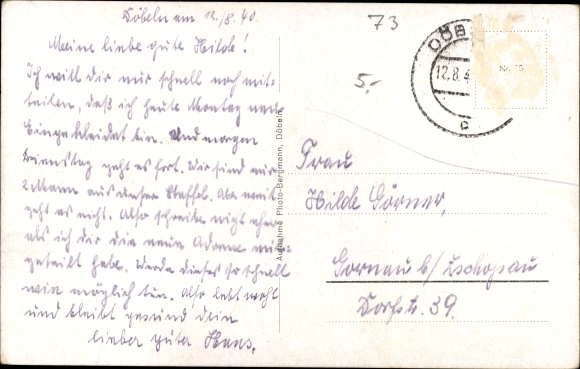 Döbeln am 12./8. 40.
Meine liebe gute Hilde!
Ich will dir nur schnell noch mit-
teilen, daß ich heute Montag neu
Eingekleidet bin. Und morgen
Dienstag geht es fort. Wir sind nur
2 Mann aus dieser Staffel. Aber weit
geht es nicht. Also schreibe nicht eher
als ich dir die neue Adresse mit-
geteilt habe. Werde dieses so schnell
wie möglich tun. Also lebt wohl
und bleibt gesund dein
lieber guter Hans.
Aufnahme Photo-Bergmann, Döbeln
73
5.-
DÖB
12.8.4
c
Nr. 15
Frau
Hilde Görner,
Gornau b/ Zschopau
Dorfstr. 39.